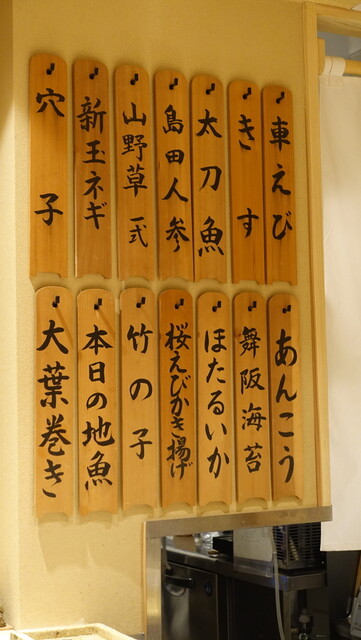 車えび
きす
太刀魚
島田人参
山野草一式
新玉ネギ
穴子
あんこう
舞阪海苔
ほたるいか
桜えびかき揚げ
竹の子
本日の地魚
大葉巻き